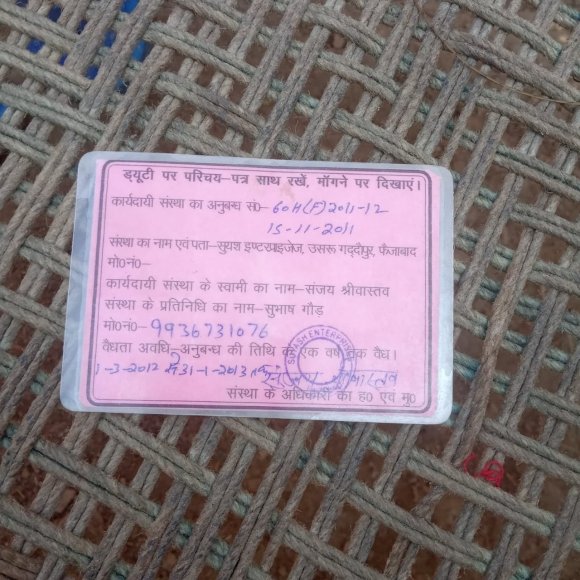 ड्यूटी पर परिचय–पत्र साथ रखें, मॉगने पर दिखाएं।
कार्यदायी संस्था का अनुबन्ध सं0– 60H(F)2011-12
15-11-2011
संस्था का नाम एवं पता–सुयश इण्टरप्राइजेज, उसरू गद्दौपुर, फैजाबाद
मो0नं0–
कार्यदायी संस्था के स्वामी का नाम–संजय श्रीवास्तव
संस्था के प्रतिनिधि का नाम–सुभाष गौड़
मो0नं0–9936731076
वैधता अवधि–अनुबन्ध की तिथि से एक वर्ष तक वैध।
1-3-2012 से 31-1-2013 तक
ENTERPRISES
संस्था के अधिकारी का ह0 एवं मु0